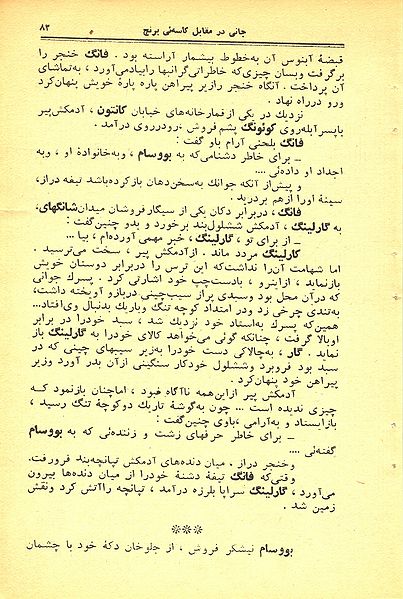 جانی در مقابل کاسه‌ئی برنج ۸۳
قبضهٔ آبنوس آن به‌خطوط بیشمار آراسته بود . فانگ خنجر را
برگرفت وبسان چیزی‌که خاطراتی‌گرانبها رابیادمی‌آورد ، به‌تماشای
آن پرداخت . آنگاه خنجر رازیر پیراهن پاره پارهٔ خویش پنهان‌کرد
ورو درراه نهاد .
نزدیك در یکی ازقمارخانه‌های خیابان کانتون ، آدمکش‌پیر
باپسرآبله‌روی کوئونگ پشم‌فروش ، رودرروی درآمد .
فانگ بلحنی آرام باو گفت :
ــ برای خاطر دشنامی‌که به بووسام ، وبه‌خانوادهٔ او ، وبه
اجداد او داده‌ئی ....
و پیش‌از آنکه جوانك به‌سخن‌دهان بازکرده‌باشد تیغه‌دراز،
سینهٔ اورا ازهم بردرید .
فانگ ، دربرابر دکان یکی از سیگارفروشان میدان‌شانگهای،
به گارلینگ ، آدمکش ششلول‌بند برخورد و بدو چنین‌گفت :
ــ از برای تو ، گارلینگ ، خبر مهمی آورده‌ام ، بیا ...
گارلینگ مردد ماند . ازآدمکش پیر ، سخت می‌ترسید .
اما شهامت آن‌را نداشت‌که این ترس را دربرابر دوستان خویش
بازنماید ، ازاینرو ، بادست‌چپ خود اشارتی کرد . پسرك جوانی
که‌درآن محل بود وسبدی پراز سیب‌چینی دربازو آویخته داشت،
به‌تندی چرخی زد ودر امتداد کوچه تنگ وباریك بدنبال وی‌افتاد...
همین‌که پسرك به‌استاد خود نزدیك شد ، سبد خودرا در برابر
اوبالا گرفت ، چنانکه گوئی می‌خواهد کالای خودرا به گارلینگ باز
نماید . گار ، به‌چالاکی دست خودرا به‌زیر سیبهای چینی که در
سبد بود فروبرد وششلول خودکار سنگینی ازآن بدر آورد وزیر
پیراهن خود پنهان‌کرد .
آدمکش پیر ازاین‌همه ناآگاه نبود ، اماچنان بازنمود کـه
چیزی ندیده است ... چون به‌گوشهٔ تاریك دوکوچهٔ تنگ رسید ،
بازایستاد و به‌آرامی ،باوی چنین‌گفت :
ــ برای خاطر حرفهای زشت و زننده‌ئی که به بووسام
گفته‌ئی ....
وخنجر دراز . میان دنده‌های آدمکش تپانچه‌بند فرورفت.
وقتی‌که فانگ تیغهٔ دشنهٔ خودرا از میان دنده‌ها بیرون
می‌آورد ، گارلینگ سراپا بلرزه درآمد ، تپانچه راآتش کرد ونقش
زمین شد .
***
بووسام نیشکر فروش ، از جلوخان دکهٔ خود با چشمان